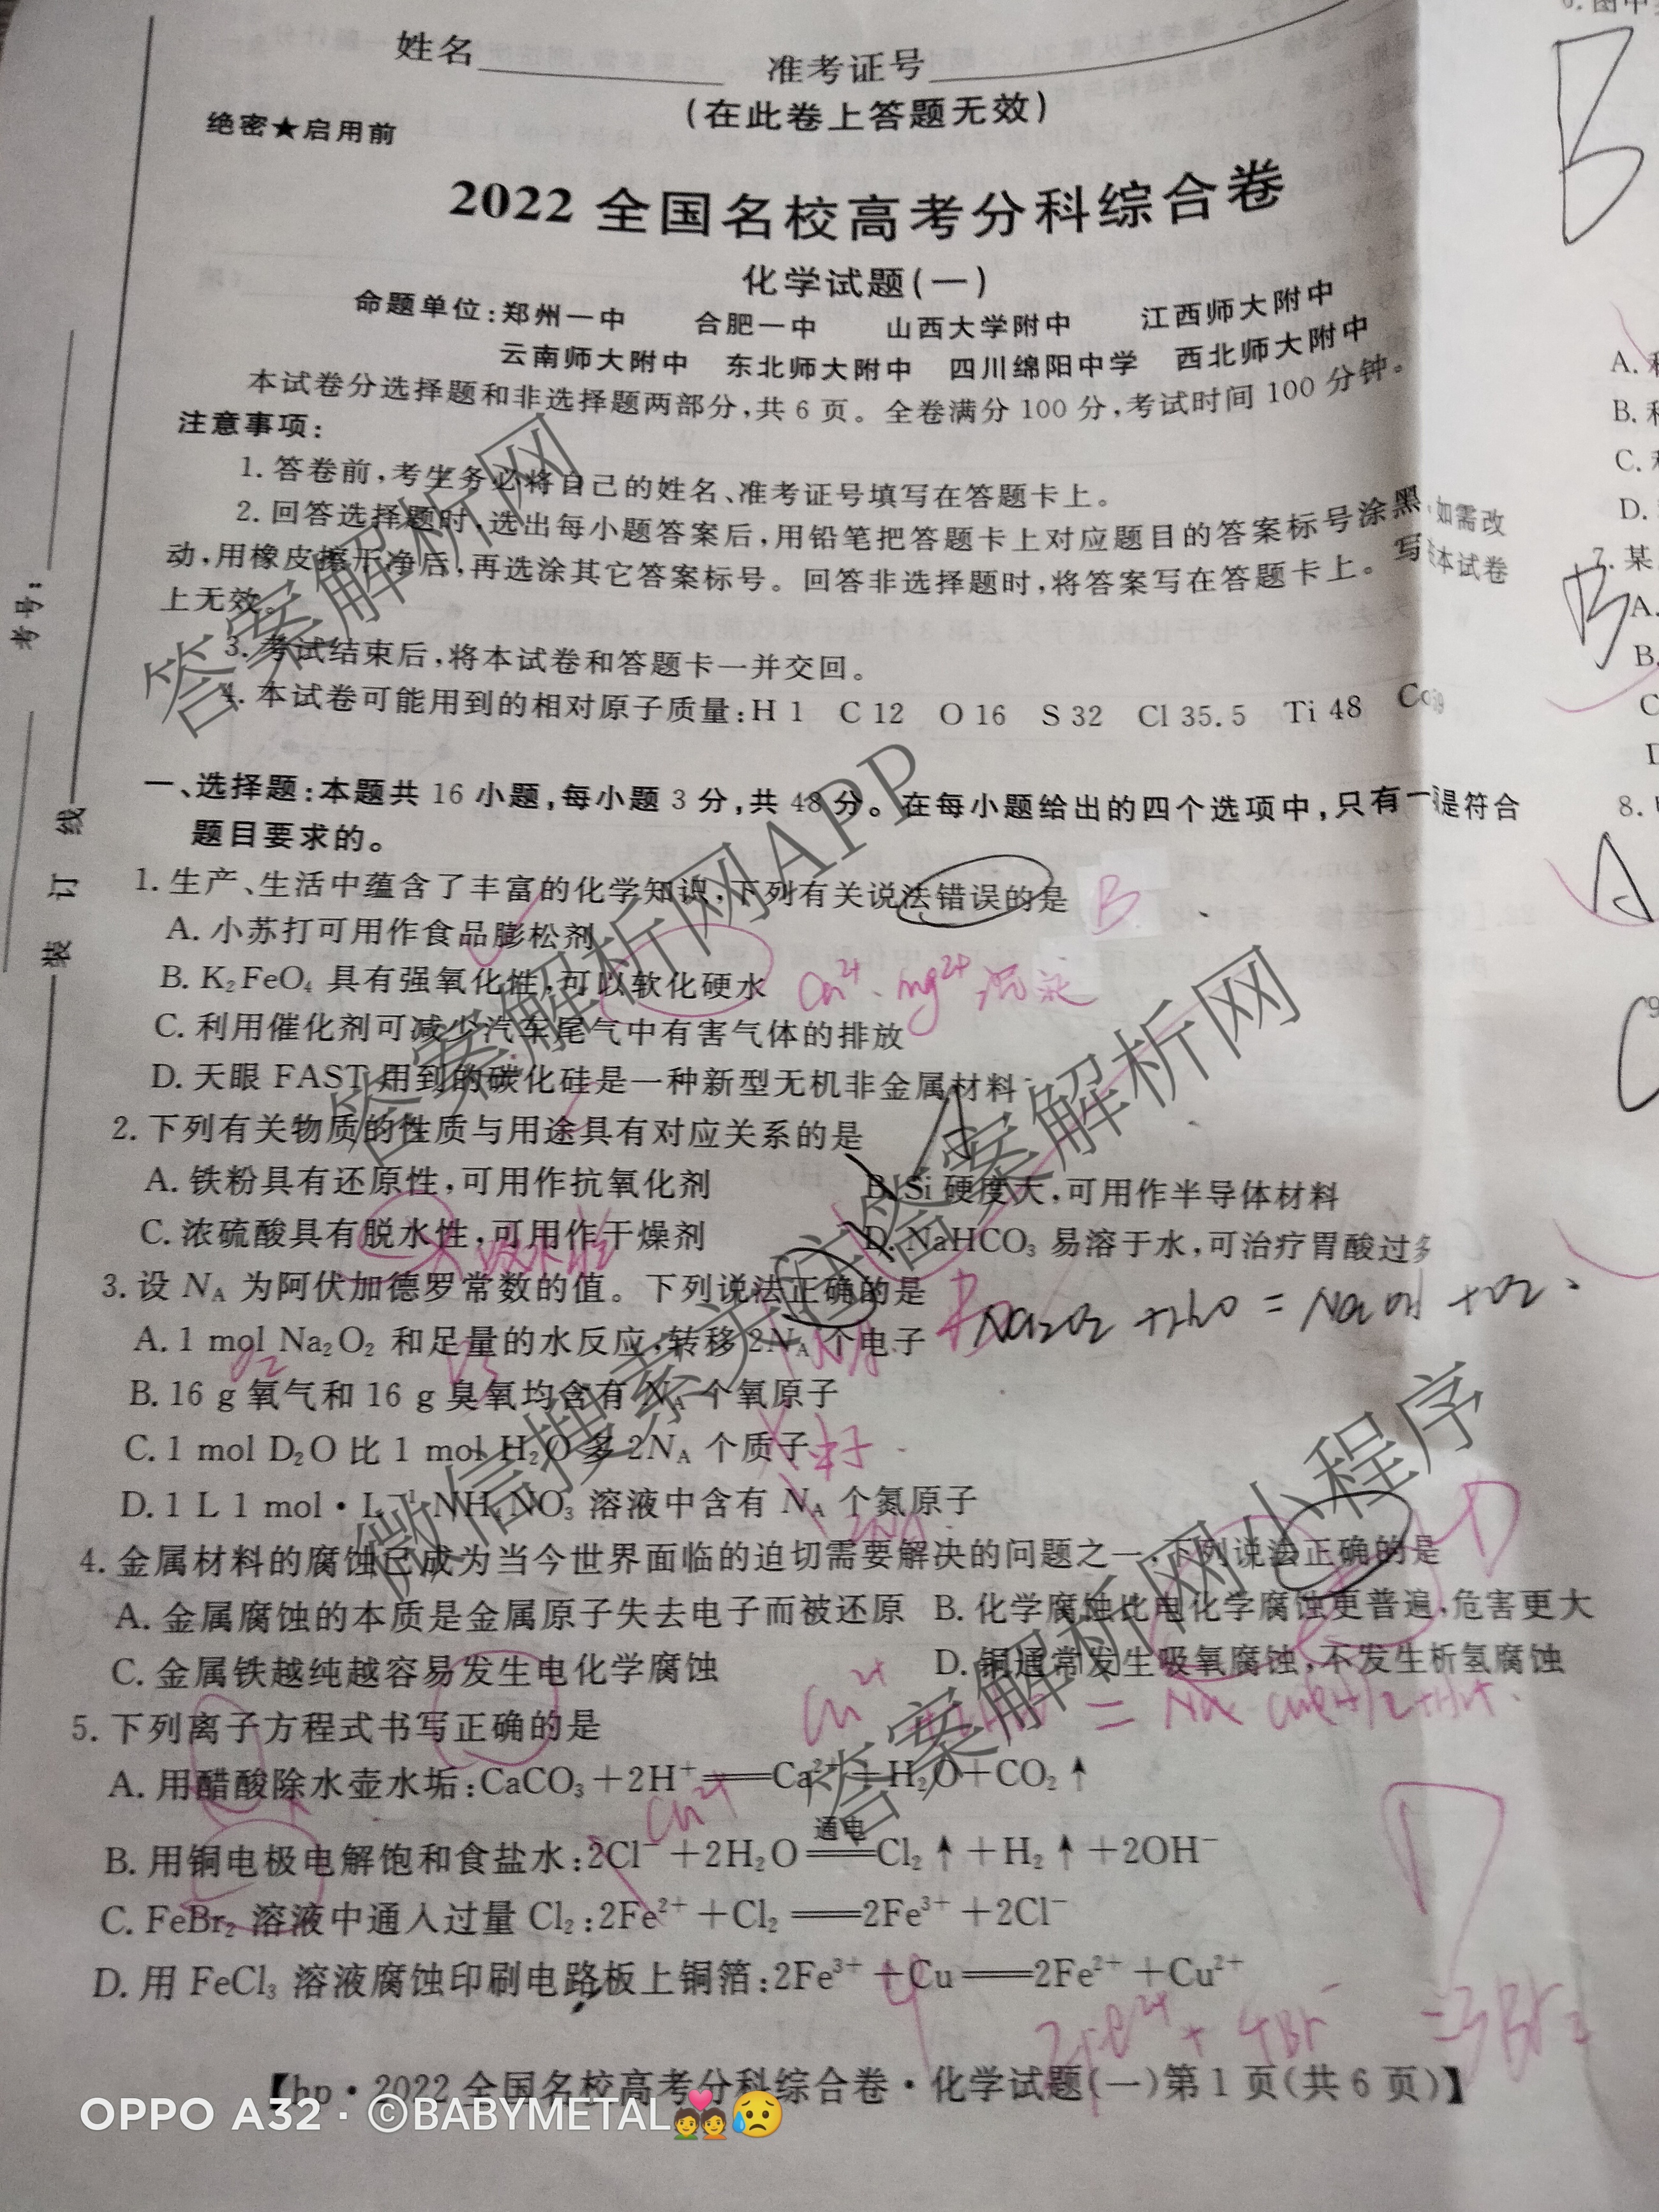 姓名 准考证号
(在此卷上答题无效)
绝密★启用前
2022 全国名校高考分科综合卷
化学试题(一)
命题单位:郑州一中 合肥一中 山西大学附中 江西师大附中
云南师大附中 东北师大附中 四川绵阳中学 西北师大附中
本试卷分选择题和非选择题两部分,共 6 页。全卷满分 100 分,考试时间 100 分钟。
注意事项:
1. 答卷前,考生务必将自己的姓名、准考证号填写在答题卡上。
2. 回答选择题时,选出每小题答案后,用铅笔把答题卡上对应题目的答案标号涂黑,如需改
动,用橡皮擦干净后,再选涂其它答案标号。回答非选择题时,将答案写在答题卡上。写在本试卷
上无效。
3. 考试结束后,将本试卷和答题卡一并交回。
4. 本试卷可能用到的相对原子质量:H 1 C 12 O 16 S 32 Cl 35.5 Ti 48 Co 59
一、选择题:本题共 16 小题,每小题 3 分,共 48 分。在每小题给出的四个选项中,只有一项是符合
题目要求的。
1. 生产、生活中蕴含了丰富的化学知识,下列有关说法错误的是 B
A. 小苏打可用作食品膨松剂
B. K₂FeO₄ 具有强氧化性,可以软化硬水 Ca²⁺、mg²⁺
C. 利用催化剂可减少汽车尾气中有害气体的排放
D. 天眼 FAST 用到的碳化硅是一种新型无机非金属材料
2. 下列有关物质的性质与用途具有对应关系的是 A
A. 铁粉具有还原性,可用作抗氧化剂 B. Si 硬度大,可用作半导体材料
C. 浓硫酸具有脱水性,可用作干燥剂 D. NaHCO₃ 易溶于水,可治疗胃酸过多
吸水性
3. 设 Nᴀ 为阿伏加德罗常数的值。下列说法正确的是 B
Na₂O₂ + H₂O = NaOH + O₂
A. 1 mol Na₂O₂ 和足量的水反应,转移 2Nᴀ 个电子
O₂ O₃
B. 16 g 氧气和 16 g 臭氧均含有 Nᴀ 个氧原子
C. 1 mol D₂O 比 1 mol H₂O 多 2Nᴀ 个质子
D. 1 L 1 mol·L⁻¹ NH₄NO₃ 溶液中含有 Nᴀ 个氮原子
2NA
4. 金属材料的腐蚀已成为当今世界面临的迫切需要解决的问题之一,下列说法正确的是 D
A. 金属腐蚀的本质是金属原子失去电子而被还原 B. 化学腐蚀比电化学腐蚀更普遍,危害更大
C. 金属铁越纯越容易发生电化学腐蚀 D. 铜通常发生吸氧腐蚀,不发生析氢腐蚀
5. 下列离子方程式书写正确的是
A. 用醋酸除水壶水垢:CaCO₃+2H⁺══Ca²⁺+H₂O+CO₂↑
Cu²⁺
通电
B. 用铜电极电解饱和食盐水:2Cl⁻+2H₂O══Cl₂↑+H₂↑+2OH⁻
D
C. FeBr₂ 溶液中通入过量 Cl₂:2Fe²⁺+Cl₂══2Fe³⁺+2Cl⁻
D. 用 FeCl₃ 溶液腐蚀印刷电路板上铜箔:2Fe³⁺+Cu══2Fe²⁺+Cu²⁺
2Fe²⁺ + 4Br⁻
【hp·2022 全国名校高考分科综合卷·化学试题(一)第 1 页(共 6 页)】
考号:
装 订 线
B
A.
B.
C.
D.
7. 某
B
A.
B.
C
8.
A
9
C
答案解析网
答案解析网APP
微信搜索关注答案解析网
答案解析网小程序
OPPO A32 · ©BABYMETAL💑😥